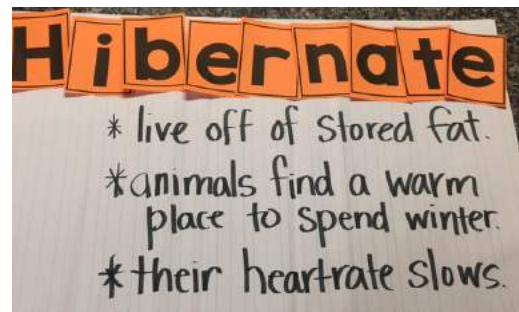 Hibernate
* live off of stored fat.
*animals find a warm
place to spend winter.
*their heartrate slows.